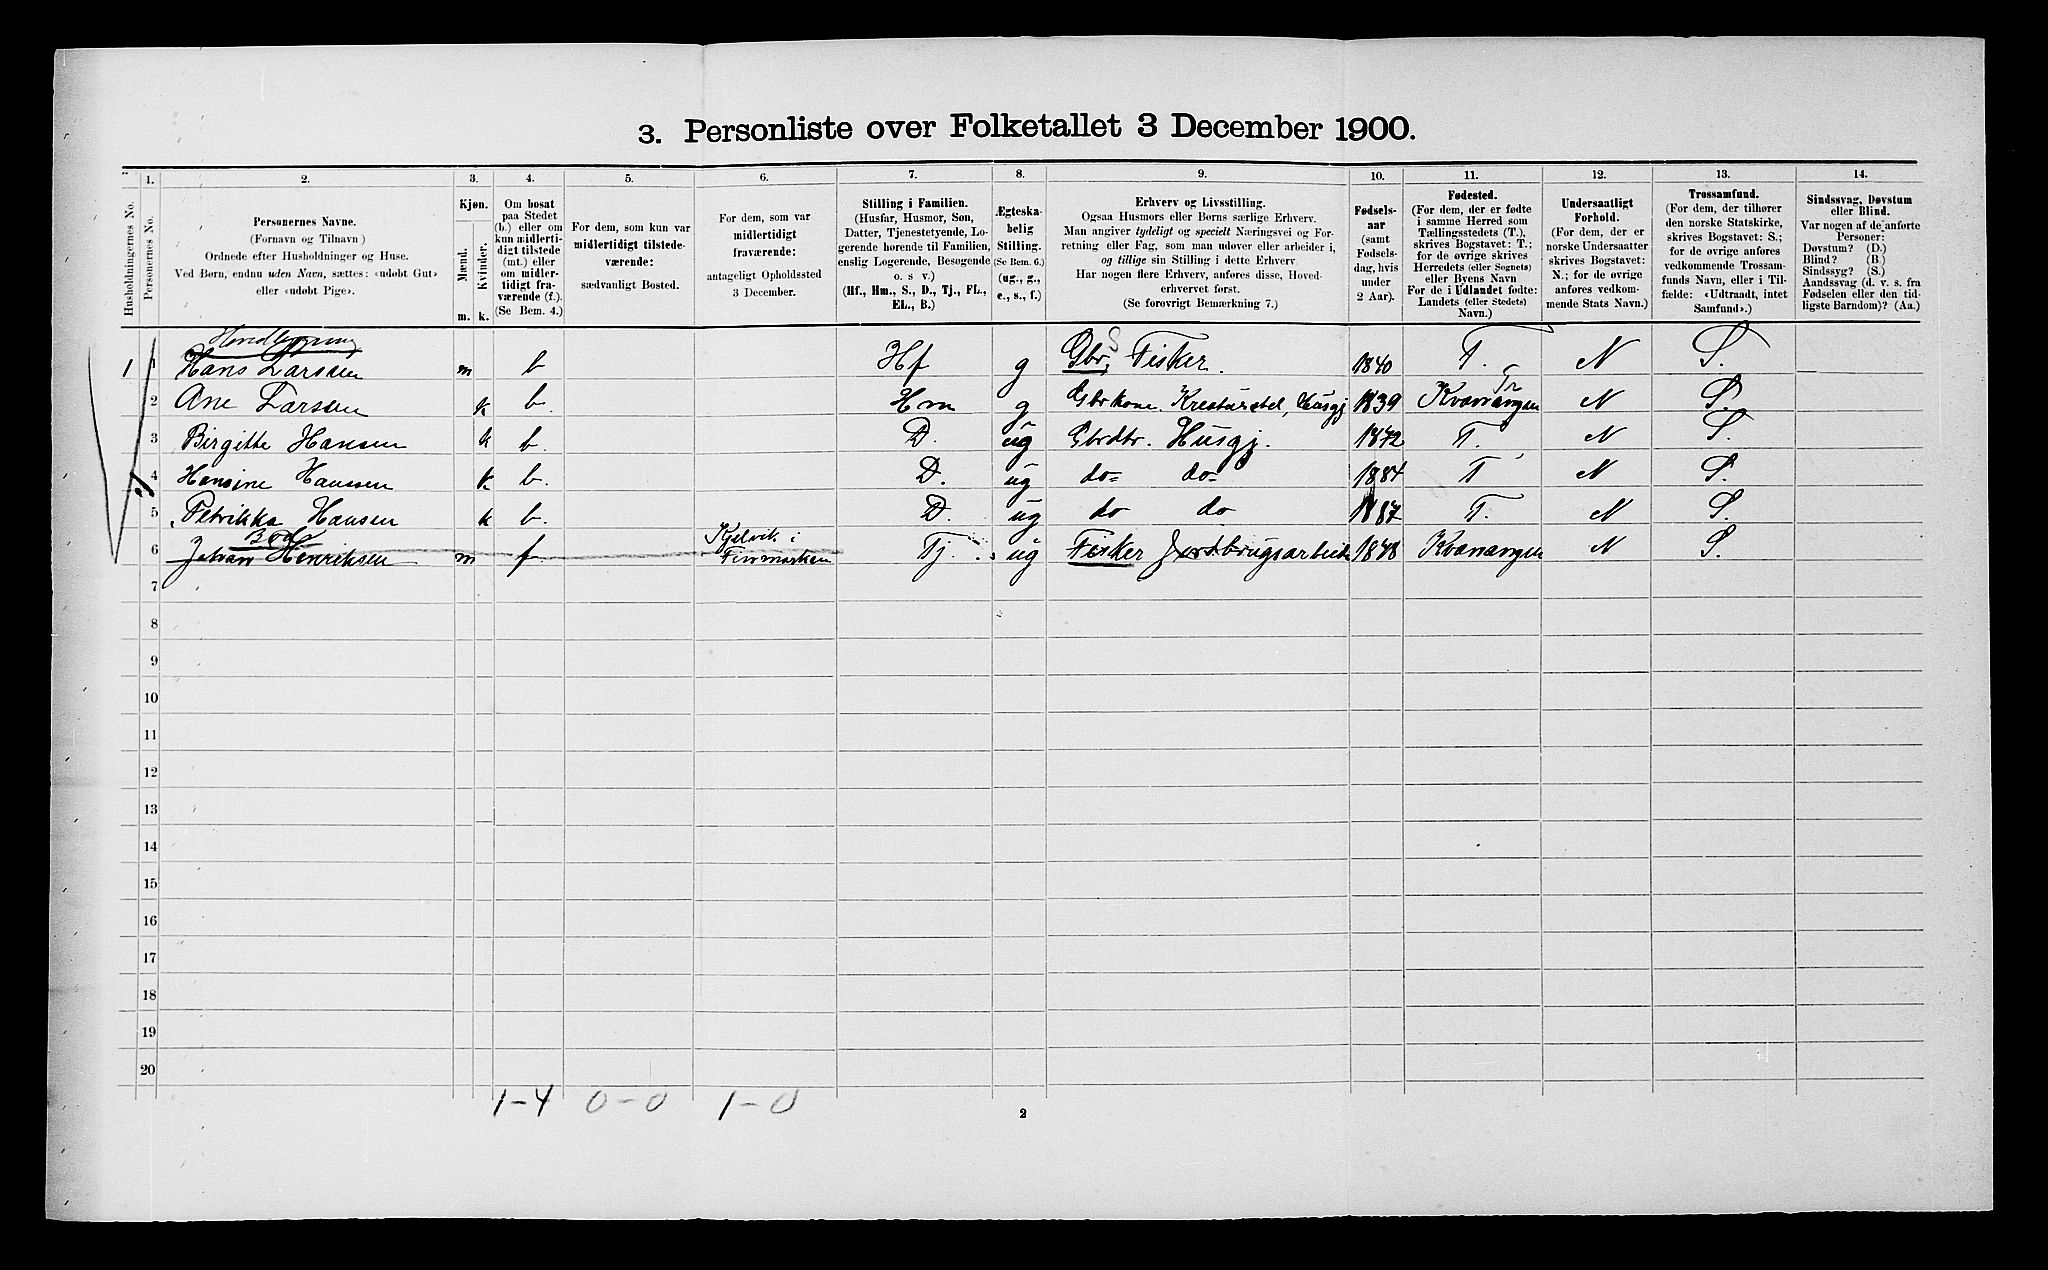 3. Personliste over Folketallet 3 December 1900.
1. 2. 3. 4. 5. 6. 7. 8. 9. 10. 11. 12. 13. 14.
Husholdningernes No.
Personernes No.
Personernes Navne.
(Fornavn og Tilnavn)
Ordnede efter Husholdninger og Huse.
Ved Børn, endnu uden Navn, sættes: «udøbt Gut»
eller «udøbt Pige».
Kjøn.
Mænd.
Kvinder.
m. k.
Om bosat
paa Stedet
(b.) eller om
kun midlerti-
digt tilstede
(mt.) eller
om midler-
tidigt fra-
værende (f.).
(Se Bem. 4.)
For dem, som kun var
midlertidigt tilstede-
værende:
sædvanligt Bosted.
For dem, som var
midlertidigt
fraværende:
antageligt Opholdssted
3 December.
Stilling i Familien.
(Husfar, Husmor, Søn,
Datter, Tjenestetyende, Lo-
gerende hørende til Familien,
enslig Logerende, Besøgende
o. s v.)
(Hf., Hm., S., D., Tj., FL.,
EL., B.)
Ægteska-
belig
Stilling.
(Se Bem. 6.)
(ug., g.,
e., s., f.)
Erhverv og Livsstilling.
Ogsaa Husmors eller Børns særlige Erhverv.
Man angiver tydeligt og specielt Næringsvei og For-
retning eller Fag, som man udøver eller arbeider i,
og tillige sin Stilling i dette Erhverv.
Har nogen flere Erhverv, anføres disse, Hoved-
erhvervet først.
(Se forøvrigt Bemærkning 7.)
Fødsels-
aar
(samt
Fødsels-
dag, hvis
under
2 Aar).
Fødested.
(For dem, der er fødte
i samme Herred som
Tællingsstedets (T.),
skrives Bogstavet: T.;
for de øvrige skrives
Herredets (eller Sognets)
eller Byens Navn
For de i Udlandet fødte:
Landets (eller Stedets)
Navn.)
Undersaatligt
Forhold.
(For dem, der er
norske Undersaatter
skrives Bogstavet:
N.; for de øvrige
anføres vedkom-
mende Stats Navn.)
Trossamfund.
(For dem, der tilhører
den norske Statskirke,
skrives Bogstavet: S.;
for de øvrige anføres
vedkommende Trossam-
funds Navn, eller i Til-
fælde: «Udtraadt, intet
Samfund».)
Sindssvag, Døvstum
eller Blind.
Var nogen af de anførte
Personer:
Døvstum? (D.)
Blind? (B.)
Sindssyg? (S.)
Aandssvag (d. v. s. fra
Fødselen eller den tid-
ligste Barndom)? (Aa.)
1 1 Hans Larsen m b Hf g Gbr, Fisker. S 1840 T. N S.
2 Ane Larsen k b. Hm g Gbrkone. Kreaturstel, Husgj 1839 Kvænangen Tr N S.
3 Birgitte Hansen k b. D. ug Gbrdtr. Husgj. 1872 T. N S.
4 Hansine Hansen k b. D. ug do= do= 1884 T N S.
5 Petrikka Hansen k b. D. ug do do 1887 T. N S.
6 Johan Henriksen m f. Kjelvik i Finmarken Tj. ug Fisker Jordbrugsarbeide 1878 Kvænangen N S.
7
8
9
10
11
12
13
14
15
16
17
18
19
20
1-4 0-0 1-0
2